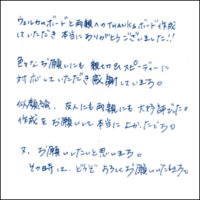 ウェルカムボードと両親へのTHANKSボード作成
していただき本当にありがとうございました!!
色々なお願いにも親切&スピーディーに
対応していただき感謝しています。
似顔絵、友人にも両親にも大好評だった
作成をお願いして本当に良かったです。
又、お願いしたいと思います。
その時は、どうぞよろしくお願いいたします。